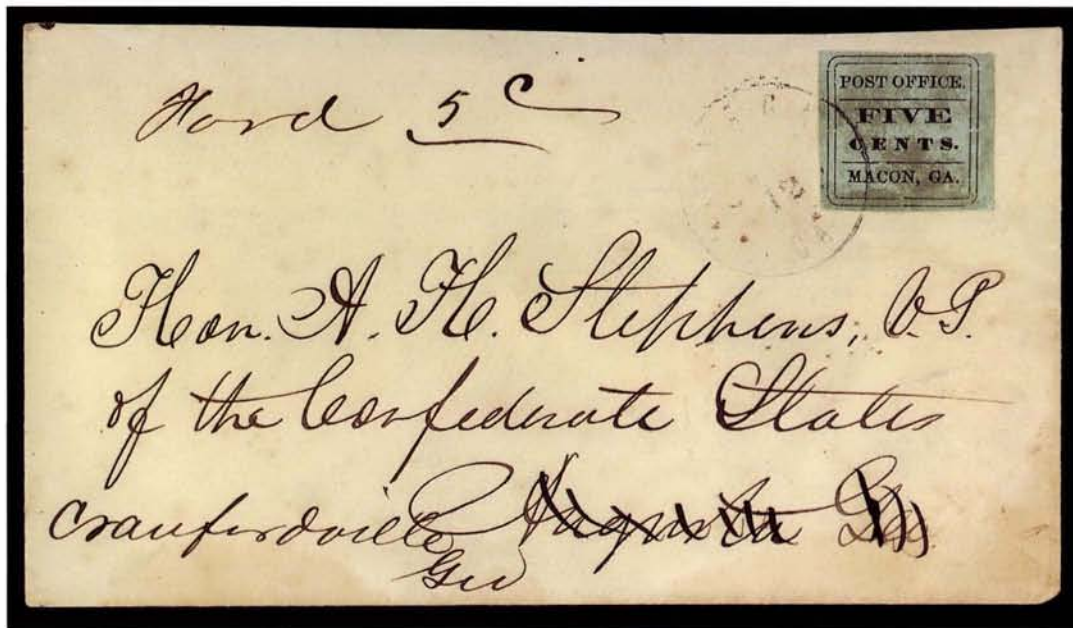 Ford 5 c
POST OFFICE.
FIVE
CENTS.
MACON, GA.
12
Hon. A. H. Stephens, V. P.
of the Confederate States
Crawfordville Augusta Geo.
Geo